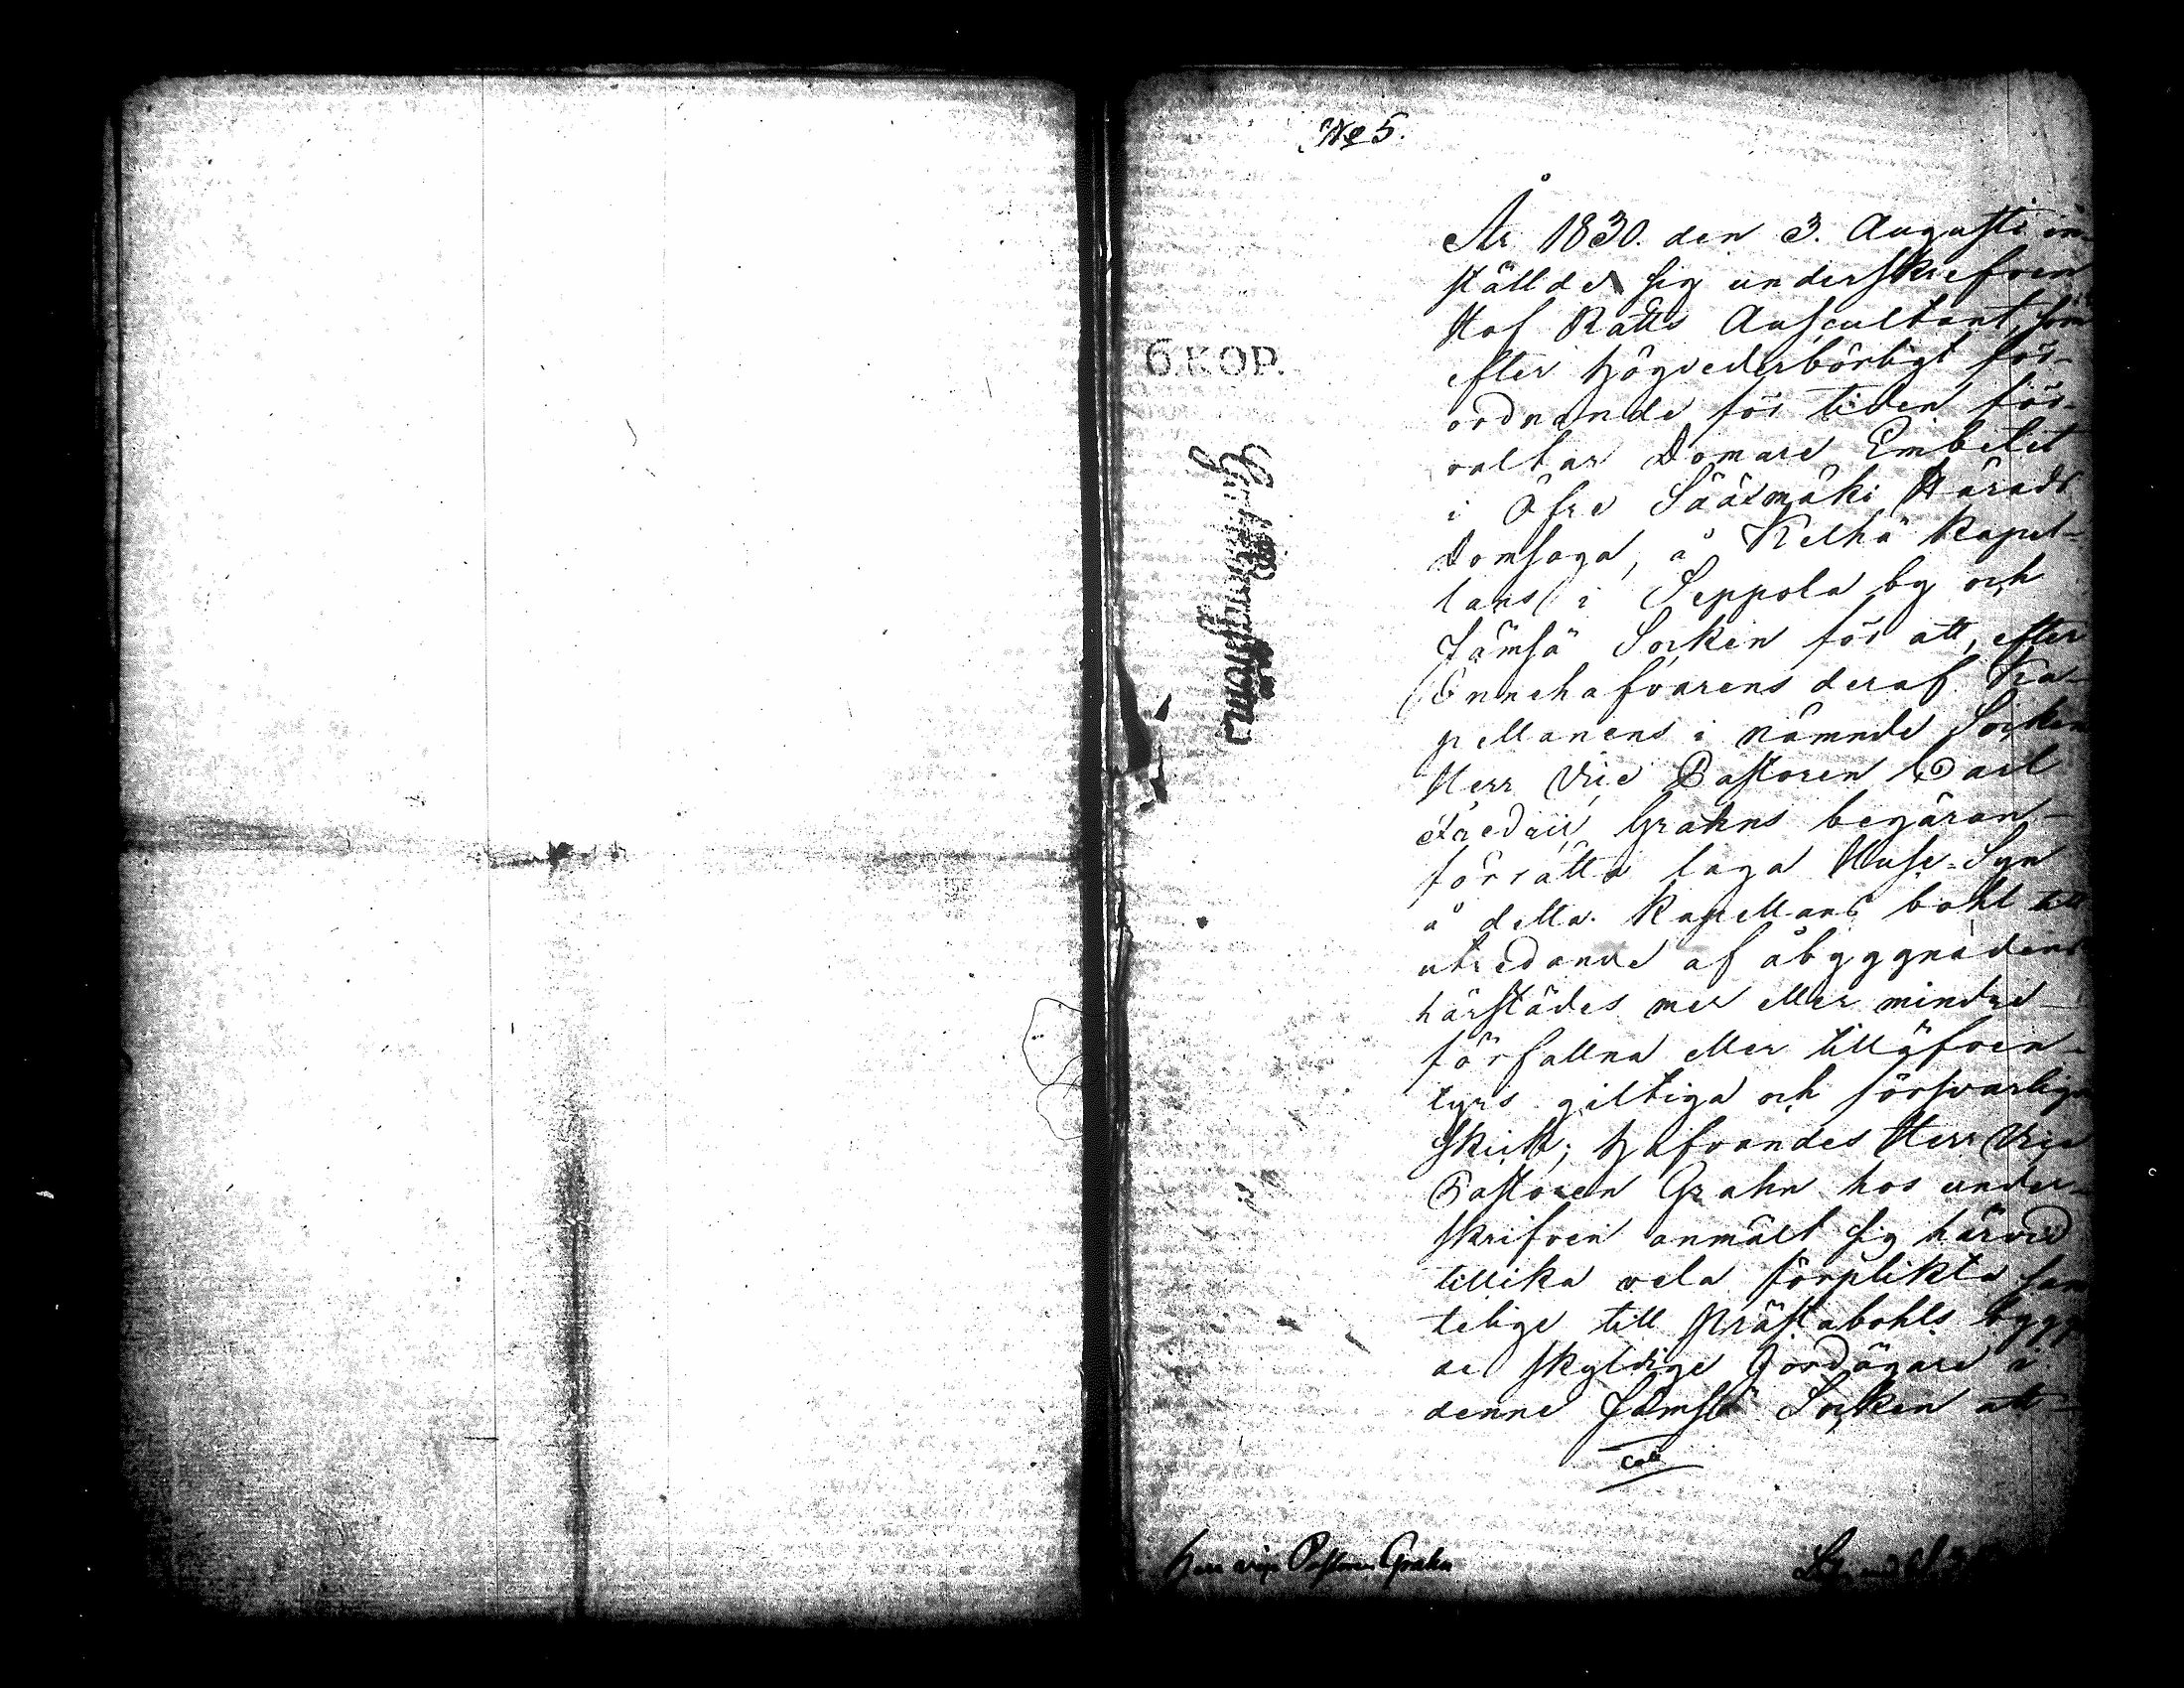 No 5.
År 1830. den 3. Augusti in-
ställde sig underskrefven
Hof Rätts Auscultant, som
efter högvederbörligt för-
ordnande för tiden för-
valtar Domare Embetet
i Öfre Sääxmäki Härads
Domsaga, å Kelhä Kapel-
lans i Seppola by och
Jämsä Socken för att, efter
Innehafvarens deraf Ka-
pellanens i nämnde Socken
Herr Vice Pastoren Carl
Grahns begäran
förrätta laga Huse-Syn
å detta Kapellans bohl till
utredande af åbyggnadens
härstädes mer eller mindre
förfallna eller tilläfven-
tyrs giltiga och försvarliga
skick; hafvandes Herr Vice
Pastoren Grahn hos under-
skrifven anmält sig härvid
tillika vela förplikta sam
telige till Prästabohls bygg
ad skyldige Jordägare i
denne Jämsä Socken att
6. KOP.
Herr vice Pastoren Grahn